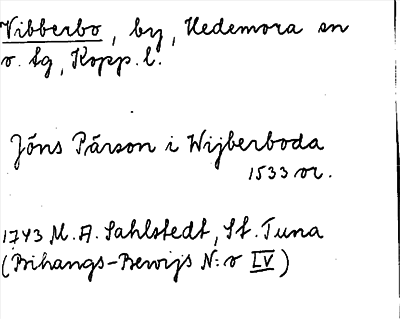 Vibberbo, by, Hedemora sn
o. lg, Kopp. l.
Jöns Pärson i Wijberboda
1533 or.
1743 M. A. Sahlstedt, St. Tuna
(Bihangs-Bewijs N:o LV)